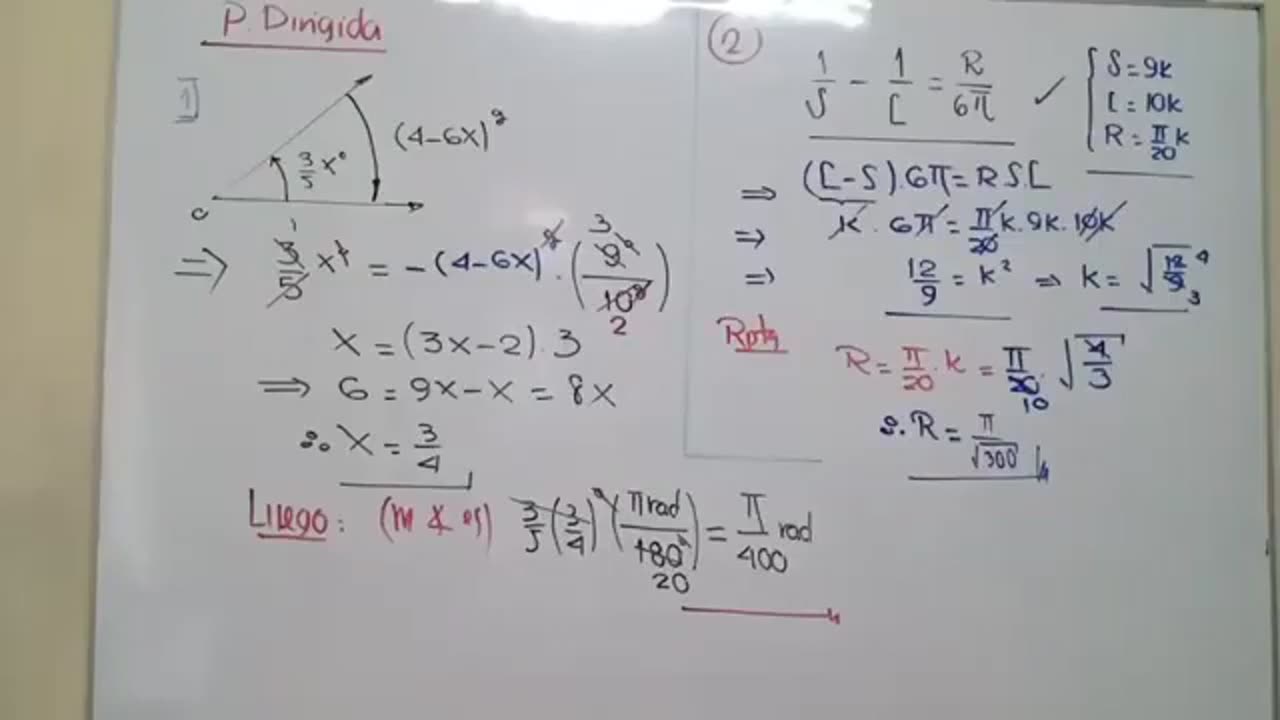 P. Dirigida
1]
(4-6x)^g
3/5 x°
⇒ 3/5 x° = -(4-6x)^g . (9°/10^g)
1 3 2
x = (3x-2).3
⇒ 6 = 9x-x = 8x
∴ x = 3/4
Luego: (m∡es) 3/5 (3/4)° (π rad/180°) = π/400 rad
20
②
1/S - 1/C = R/6π ✓ { S = 9k
C = 10k
R = π/20 k
⇒ (C-S).6π = R S.C
⇒ k . 6π = π/20 k . 9k . 10k
⇒ 12/9 = k² ⇒ k = √12/9
4 3
Rpta R = π/20 . k = π/20 . √4/3
10
∴ R = π/√300